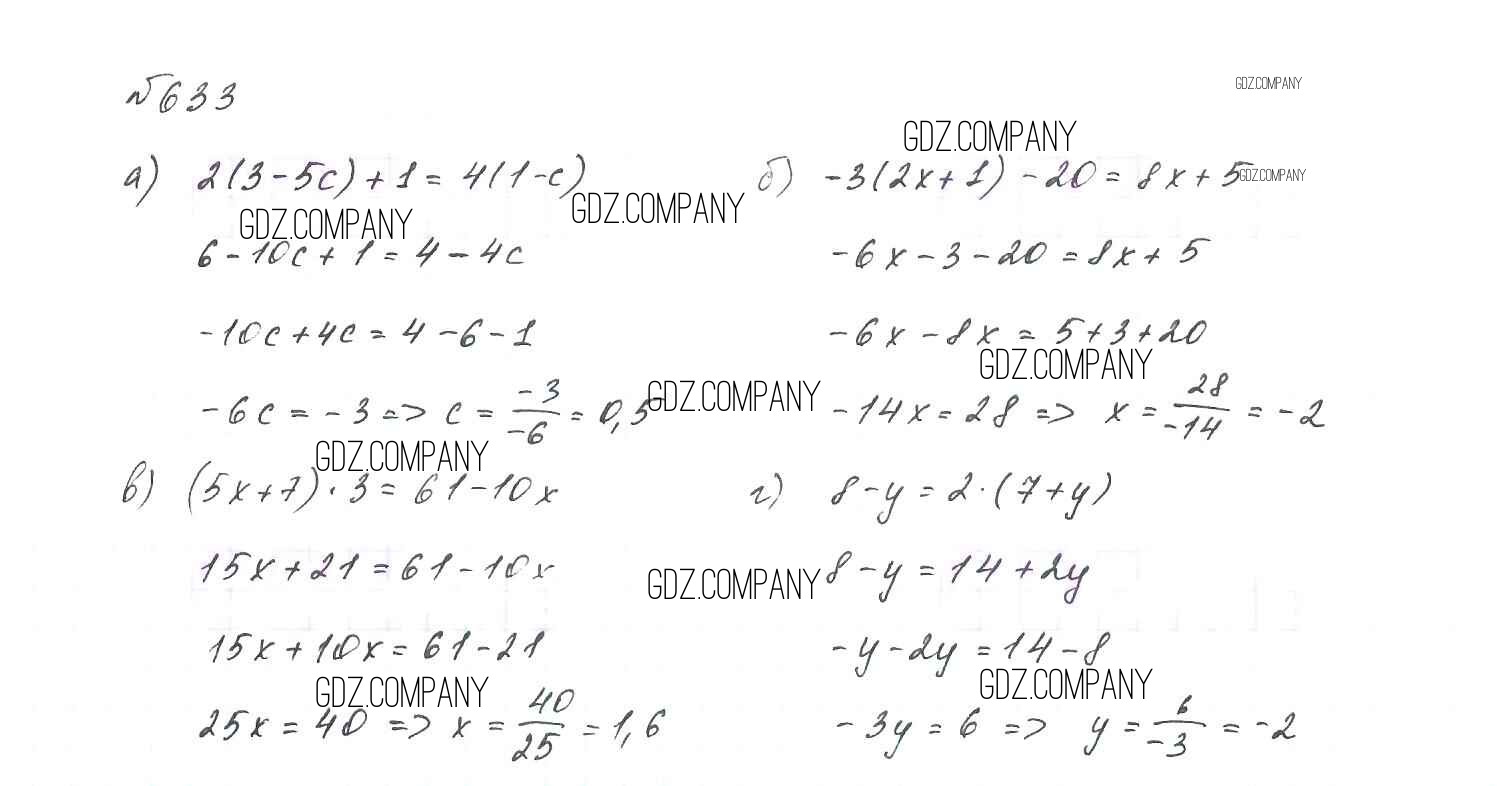 №633
GDZ.COMPANY
GDZ.COMPANY
а) 2(3-5c)+1=4(1-c)
б) -3(2x+1)-20=8x+5
GDZ.COMPANY
GDZ.COMPANY
GDZ.COMPANY
6-10c+1=4-4c
-6x-3-20=8x+5
-10c+4c=4-6-1
-6x-8x=5+3+20
GDZ.COMPANY
GDZ.COMPANY
-6c=-3=>c=-3/-6=0,5
-14x=28=>x=28/-14=-2
GDZ.COMPANY
в) (5x+7)·3=61-10x
г) 8-y=2·(7+y)
15x+21=61-10x
8-y=14+2y
GDZ.COMPANY
15x+10x=61-21
-y-2y=14-8
GDZ.COMPANY
GDZ.COMPANY
25x=40=>x=40/25=1,6
-3y=6=>y=6/-3=-2